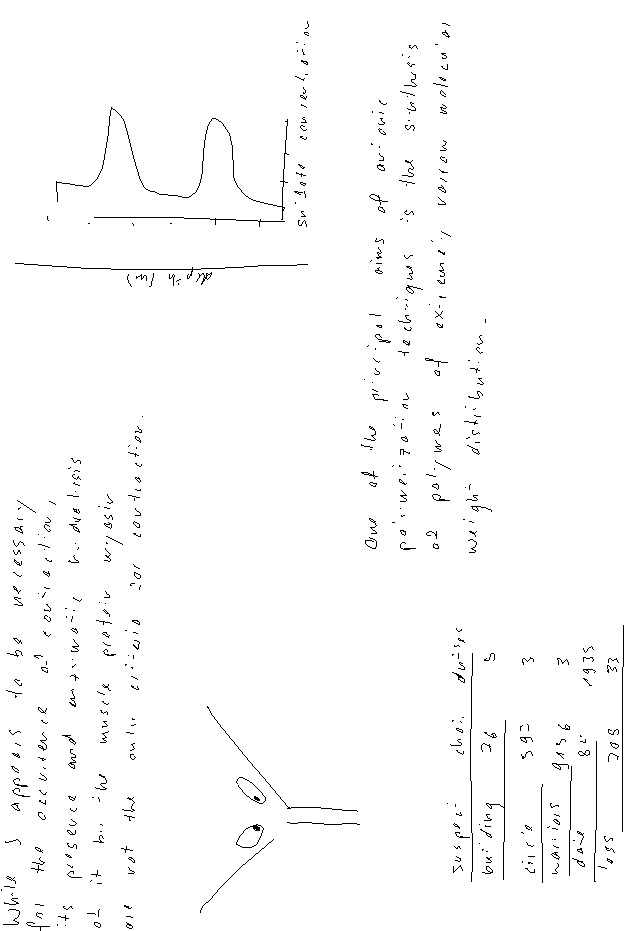 While S appears to be necessary
for the occurrence of contraction,
its presence and enzymatic hydrolysis
of it by the muscle protein myosin
are not the only criteria for contraction.
depth (m)
sulfate concentration
One of the principal aims of anionic
polymerization techniques is the synthesis
of polymers of extremely narrow molecular
weight distribution.
suspect choir
building 26 5
circle 592 3
warriors 9156 3
date 1935
loss 203 33